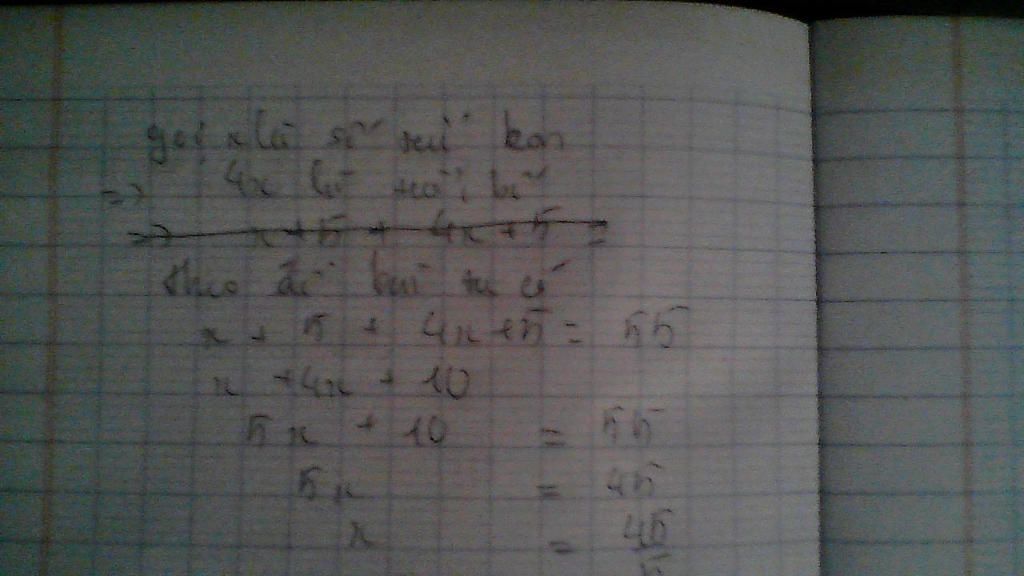 gọi x là số tuổi con
=> 4x là tuổi bố
=> x + 5 + 4x + 5 =
theo đề bài ta có
x + 5 + 4x + 5 = 55
x + 4x + 10
5x + 10 = 55
5x = 45
x = 45/5